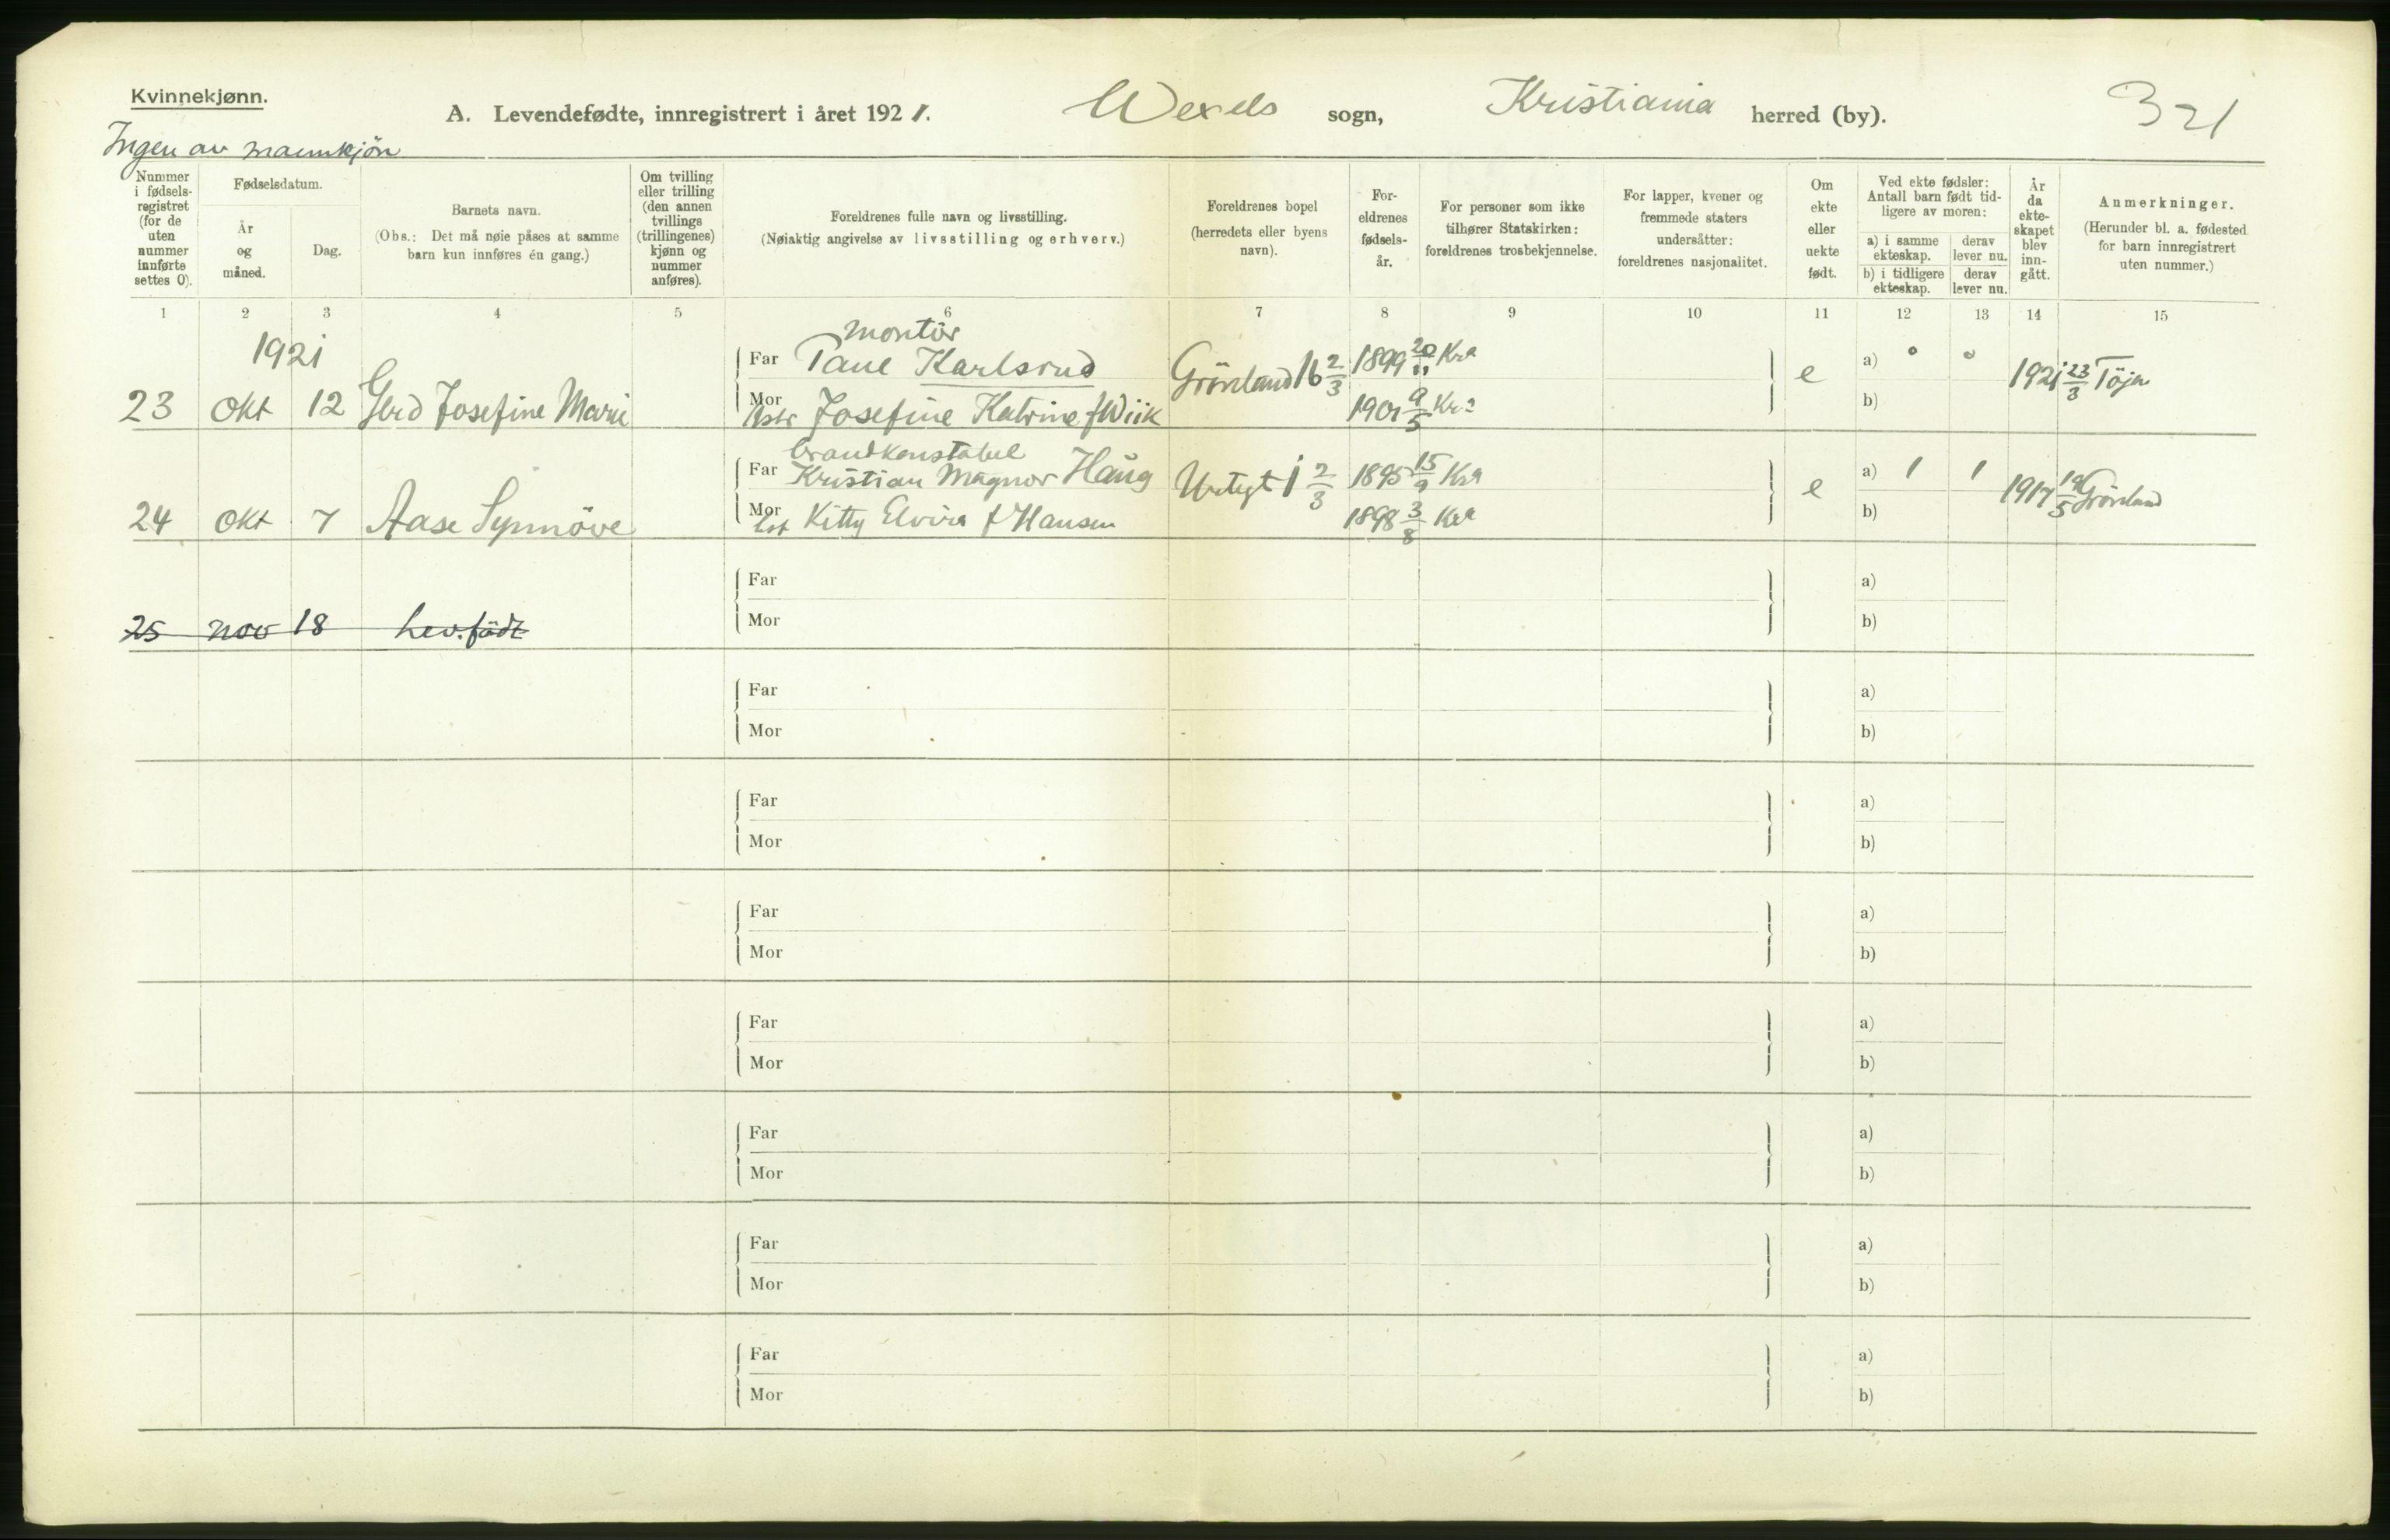 Kvinnekjønn.
A. Levendefødte, innregistrert i året 1921. Wexels sogn, Kristiania herred (by).
321
Ingen av mannkjön
Nummer i fødselsregistret (for de uten nummer innførte settes 0).
Fødselsdatum.
År og måned.
Dag.
Barnets navn.
(Obs.: Det må nøie påses at samme barn kun innføres én gang.)
Om tvilling eller trilling (den annen tvillings (trillingenes) kjønn og nummer anføres).
Foreldrenes fulle navn og livsstilling.
(Nøiaktig angivelse av livsstilling og erhverv.)
Foreldrenes bopel (herredets eller byens navn).
Foreldrenes fødselsår.
For personer som ikke tilhører Statskirken: foreldrenes trosbekjennelse.
For lapper, kvener og fremmede staters undersåtter: foreldrenes nasjonalitet.
Om ekte eller uekte født.
Ved ekte fødsler: Antall barn født tidligere av moren:
a) i samme ekteskap.
derav lever nu.
b) i tidligere ekteskap.
derav lever nu.
År da ekteskapet blev inngått.
Anmerkninger.
(Herunder bl. a. fødested for barn innregistrert uten nummer.)
1 2 3 4 5 6 7 8 9 10 11 12 13 14 15
1921
montör
Far Karlsrud Grönland 16 2/3 1899 20/11 Kra e a) 0 0 1921 23/3 Töjen
23 okt 12 Gerd Josefine Marie
Mor Josefine Katrine f Wiik 1901 9/5 Kra b)
brandkonstabel
Far Kristian Magnor Haug Urtegt 1 2/3 1895 15/9 Kra e a) 1 1 1917 19/5 Grönland
24 okt 7 Aase Synnöve
Mor Kitty Elvira f Hansen 1898 3/8 Kra b)
Far a)
25 nov 18 lev. födt
Mor b)
Far a)
Mor b)
Far a)
Mor b)
Far a)
Mor b)
Far a)
Mor b)
Far a)
Mor b)
Far a)
Mor b)
Far a)
Mor b)